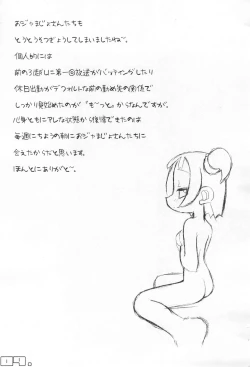 おジャまじょさんたちも
とうとうそつぎょうしてしまいましたねぇ。
個人的には
前の引越しに第一回放送がバッティングしたり
休日出勤がデフォルトな前の勤め先の関係で
しっかり見始めたのが「も〜っと」からなんですが。
心身ともにアレな状態から復帰できたのは
毎週にちようの朝におジャまじょさんたちに
会えたからだと思います。
ほんとにありがと〜。